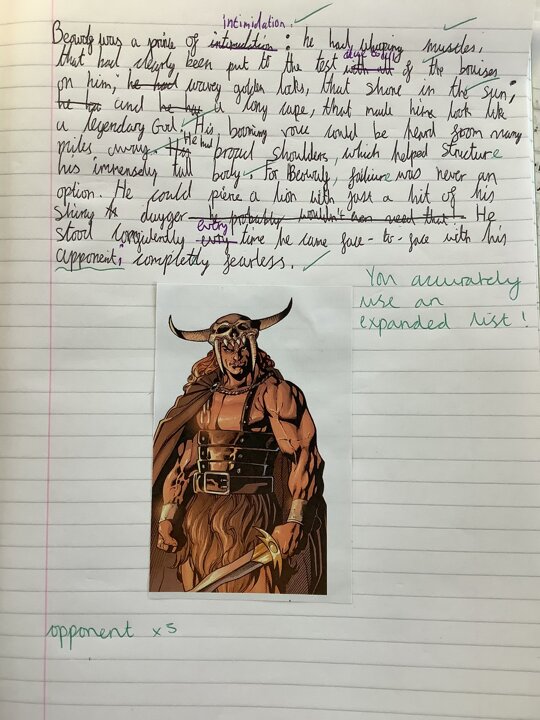 Intimidation.
Beowulf was a prince of intimidation : he had whopping muscles,
that had clearly been put to the test with all due to of the bruises
on him; he had wavey golden locks, that shone in the sun;
he has and he has a long cape, that made him look like
a legendary God. His booming voice could be heard from many
miles away. Has He had broad shoulders, which helped structure
his immensely tall body. For Beowulf, failiure was never an
option. He could pierce a lion with just a hit of his
shiny dagger he probably wouldn't even need that! He
stood confidently every time he came face-to-face with his
apponent; completly fearless.
You accurately
use an
expanded list!
opponent x5